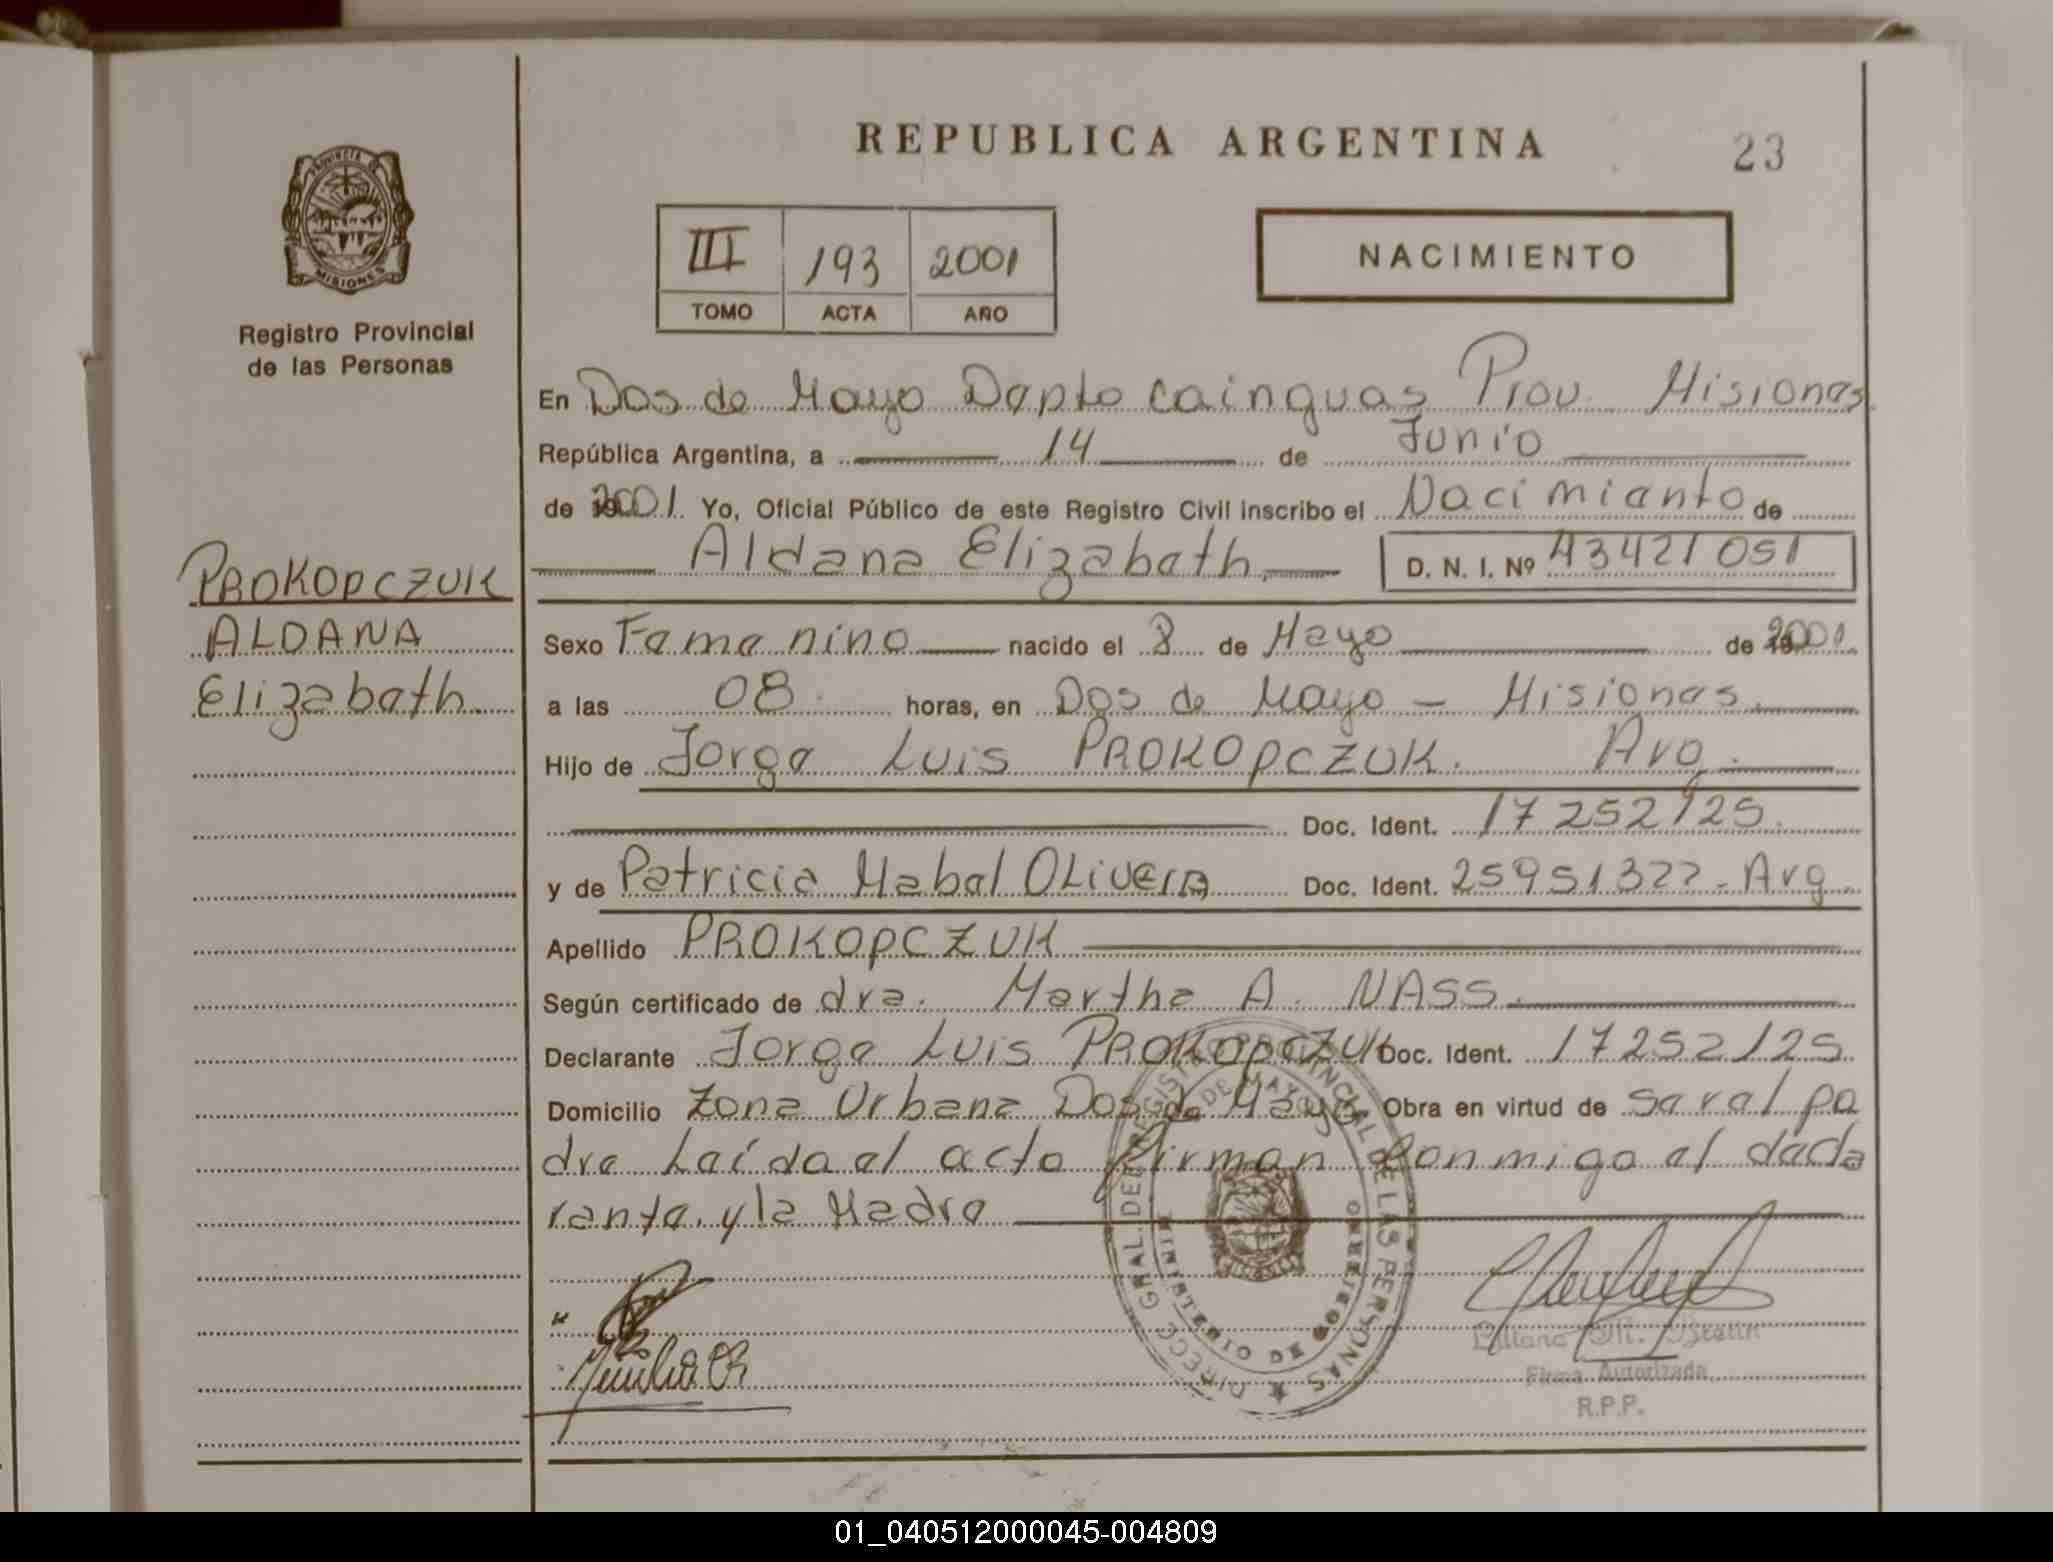 REPUBLICA ARGENTINA
23
PROVINCIA DE MISIONES
Registro Provincial
de las Personas
III 193 2001
TOMO ACTA AÑO
NACIMIENTO
En Dos de Mayo Depto Cainguas Prov. Misiones
República Argentina, a 14 de Junio
de 2001. Yo, Oficial Público de este Registro Civil inscribo el Nacimiento de
Aldana Elizabeth. D. N. I. Nº 43421051
PROKOPCZUK
ALDANA
Elizabeth.
Sexo Femenino nacido el 8 de Mayo de 2001
a las 08. horas, en Dos de Mayo - Misiones.
Hijo de Jorge Luis PROKOPCZUK. Arg.
Doc. Ident. 17252125.
y de Patricia Mabel OLivera Doc. Ident. 25951327 - Arg.
Apellido PROKOPCZUK
Según certificado de dra. Martha A. NASS.
Declarante Jorge Luis PROKOPCZUK Doc. Ident. 17252125
Domicilio Zona Urbana Dos de Mayo. Obra en virtud de ser el pa
dre Leída el acta firman conmigo el decla
rante. y la Madre
DIRECC. GRAL. DEL REGISTRO PROVINCIAL DE LAS PERSONAS
DE MAYO
MINISTERIO DE GOBIERNO
Firma Autorizada
R.P.P.
01_040512000045-004809